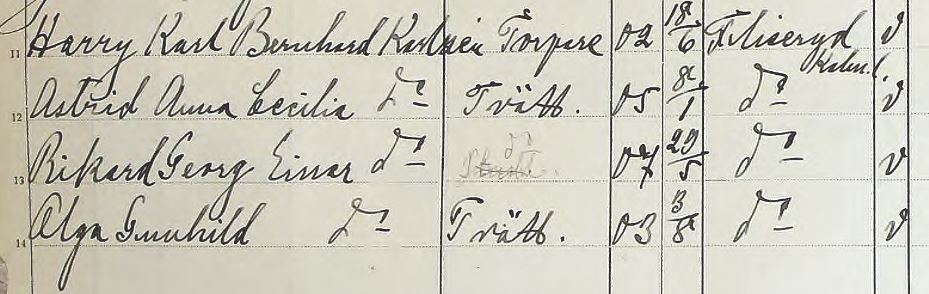 11 Harry Karl Bernhard Karlzén Torpare 02 18/6 Fliseryd v
Kalm. l.
12 Astrid Anna Cecilia do Tvätt. 05 8/1 do v
13 Rikard Georg Einar do do 07 29/5 do v
14 Olga Gunhild do Tvätt. 03 3/8 do v